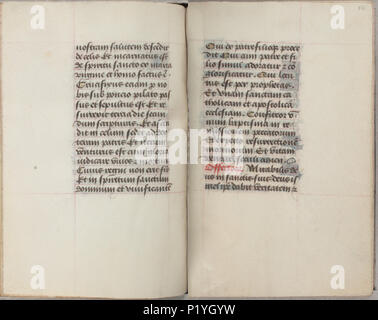 nostram salutem descēdit
de celis Et incarnatus est
de spiritu sancto ex maria
virgine et homo factus ē
Crucifixus etiam pro no
bis sub poncio pylato pas
sus et sepultus est Et re
surrexit tercia die secun
dum scripturas Et ascen
dit in celum sedet ad dex
teram patris Et iterum
venturus est cum gloria
iudicare vivos et mortuos
Cuius regni non erit fi
Et in spiritum sanctum
dominum et vivificantem
Qui ex patre filioque proce
dit Qui cum patre et fi
lio simul adoratur et co
glorificatur Qui locu
tus est per prophetas
Et unam sanctam ca
tholicam et apostolicā
ecclesiam Confiteor v
num baptisma in re
missionem peccatorum
resurrectionē
mortuorum Et vitam
venturi seculi amen
Offertoriū Mirabilis de
us in sanctis suis deus is
rael ipse dabit
alamy
Image ID: P1YGYW
www.alamy.com